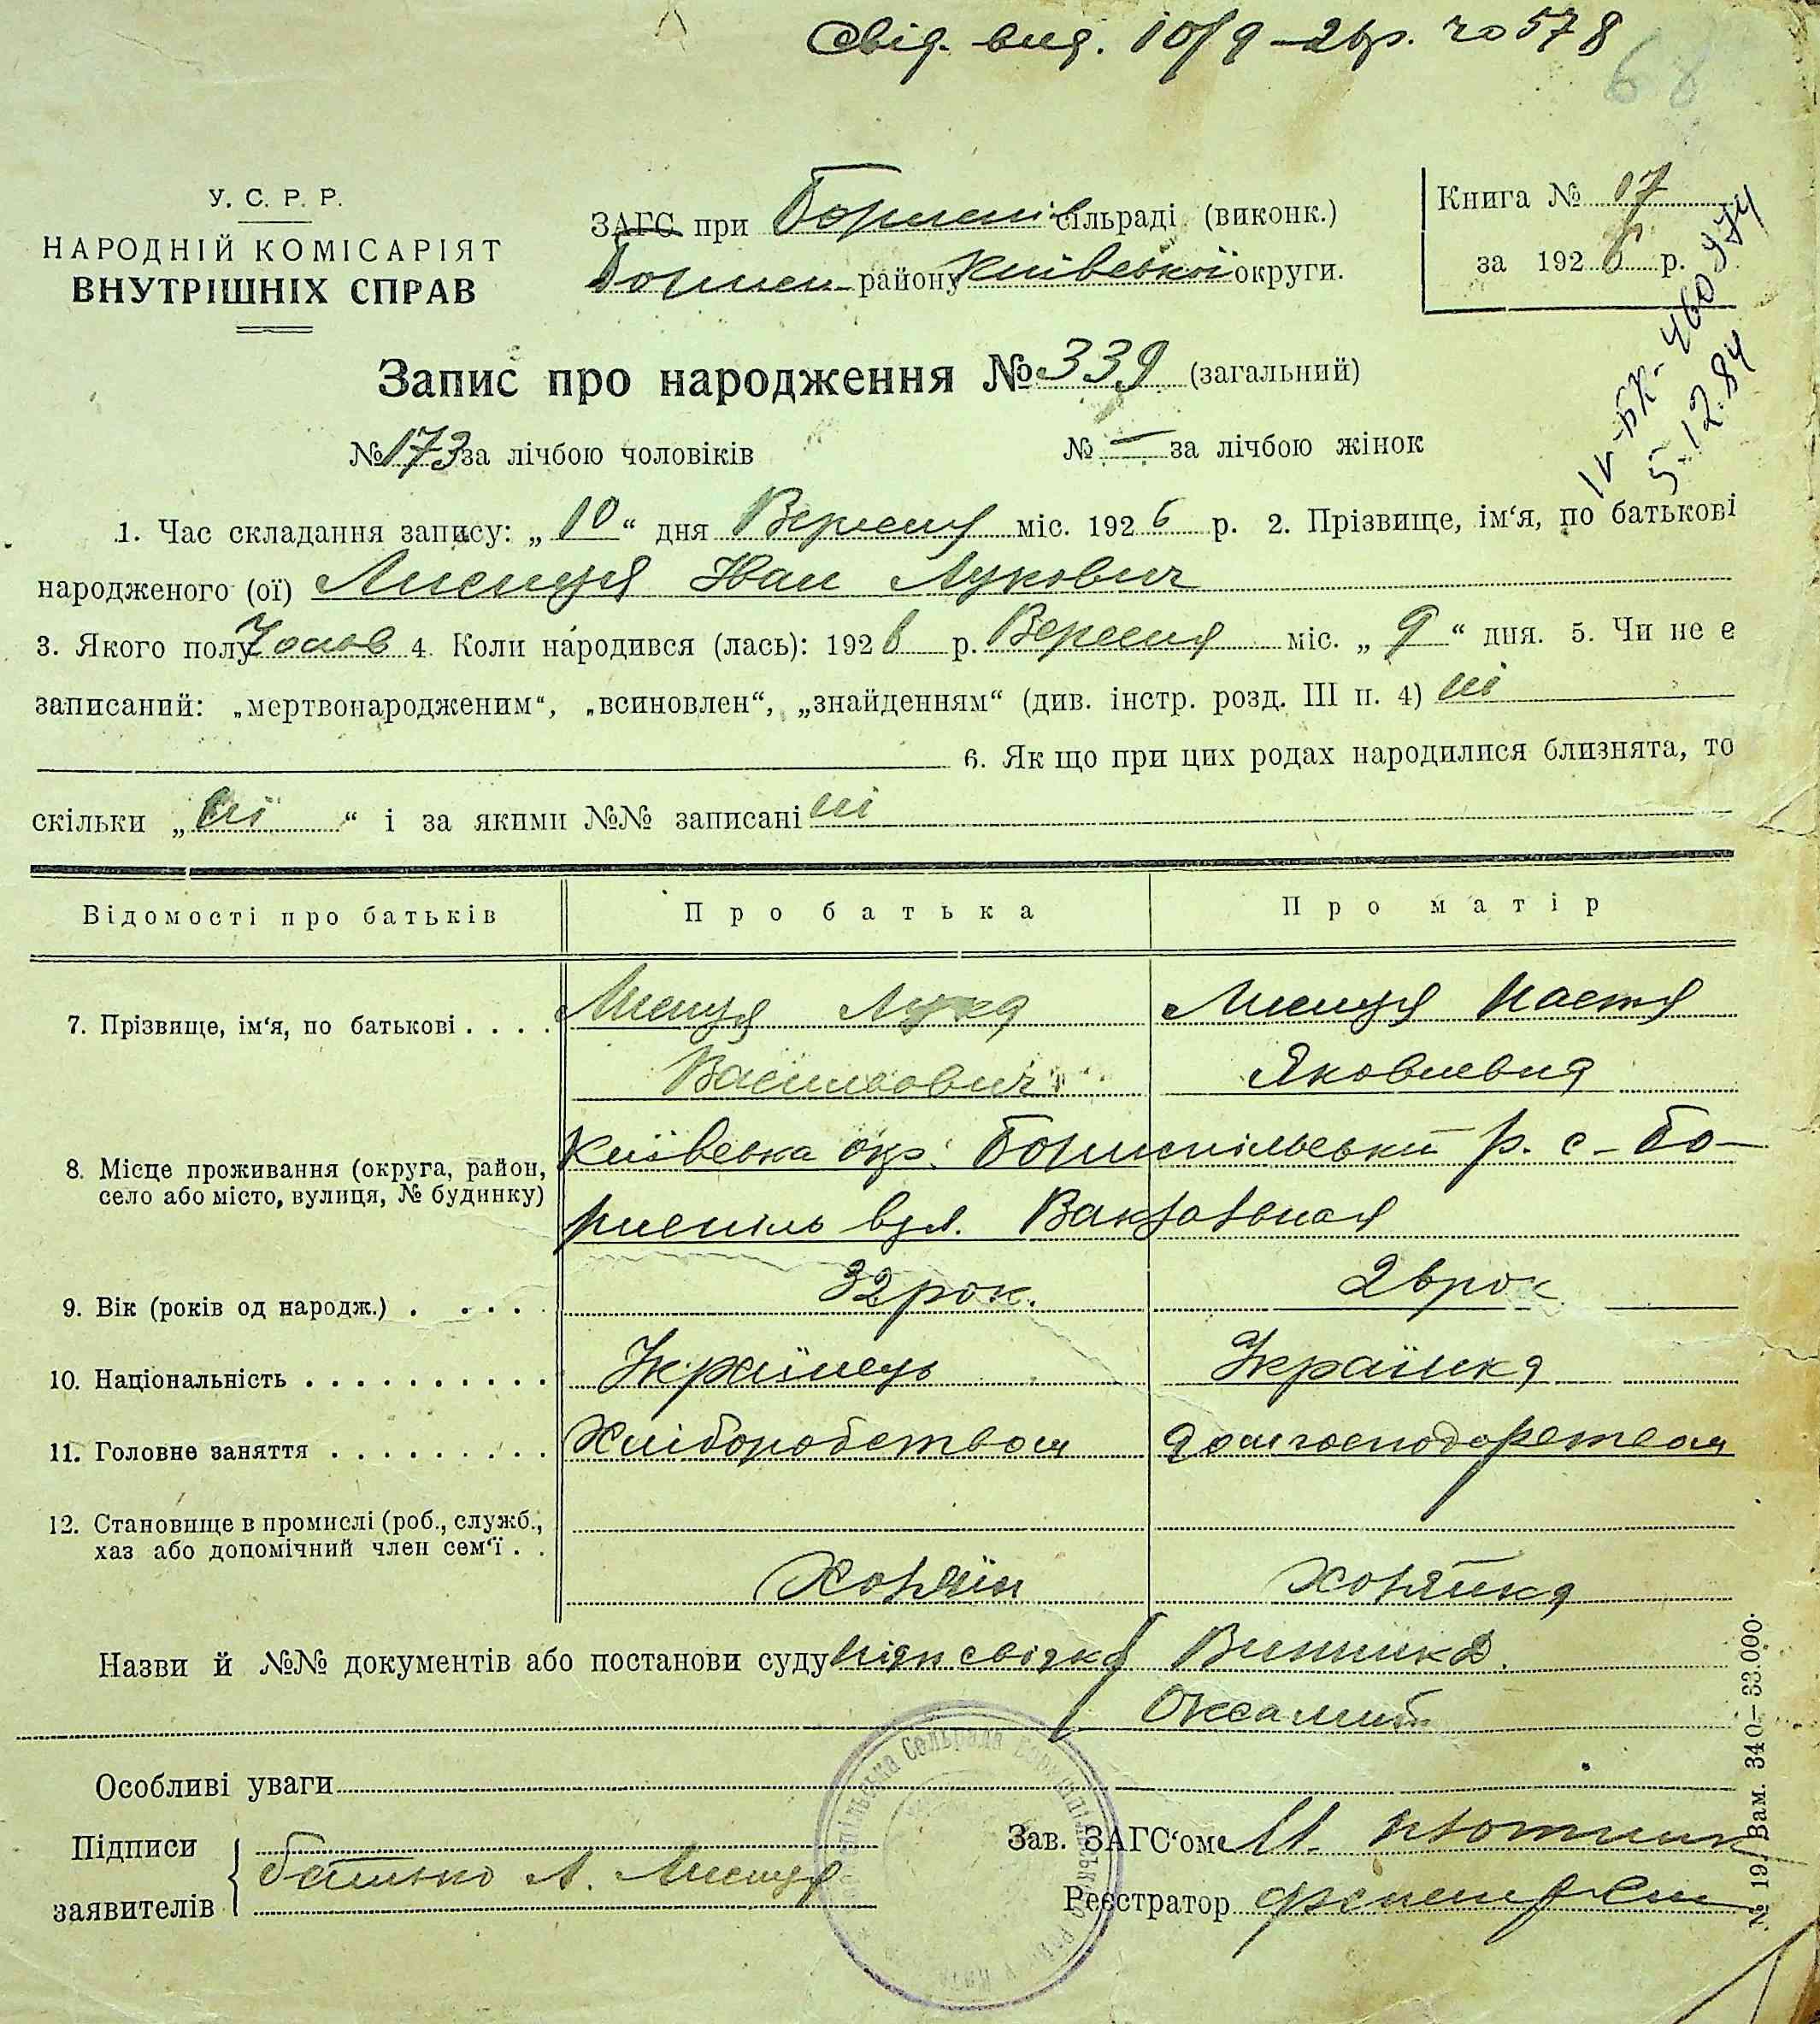 Свід. вид. 10/9 – 26р. № 578
68
У. С. Р. Р.
НАРОДНІЙ КОМІСАРІЯТ
ВНУТРІШНІХ СПРАВ
ЗАГС при Борисп сільраді (виконк.)
Борисп району Київської округи.
Книга № 17
за 1926 р.
IV-БК-460974
5.12.84
Запис про народження № 339 (загальний)
№ 173 за лічбою чоловіків № — за лічбою жінок
1. Час складання запису: „10“ дня Вересня міс. 1926 р. 2. Прізвище, ім‘я, по батькові
народженого (ої) Лисиця Иван Лукович
3. Якого полу Чолов 4. Коли народився (лась): 1926 р. Вересня міс. „9“ дня. 5. Чи не є
записаний: „мертвонародженим“, „всиновлен“, „знайденням“ (див. інстр. розд. III п. 4) ні
6. Як що при цих родах народилися близнята, то
скільки „ні“ і за якими №№ записані ні
Відомості про батьків Про батька Про матір
7. Прізвище, ім‘я, по батькові . . . . Лисиця Лука Лисиця Настя
Васильович Яковлевна
8. Місце проживання (округа, район, село або місто, вулиця, № будинку) Київська окр. Бориспільський р. с – Бо-
риспіль вул. Вакзальная
9. Вік (років од народж.) . . . . . 32 рок. 26 рок
10. Національність . . . . . . . . . . Українець Українка
11. Головне заняття . . . . . . . . . Хліборобством домгосподарством
12. Становище в промислі (роб., служб.,
хаз або допомічний член сем‘ї . .
Хозяїн хозяйка
Назви й №№ документів або постанови суду свідка Винник Д.
Оксамит
Особливі уваги
Підписи
заявителів батько Л. Лисиця
Зав. ЗАГС‘оме И.
Реєстратор
Сельрада Бориспільського
№ 19/Вам. 340–33.000.